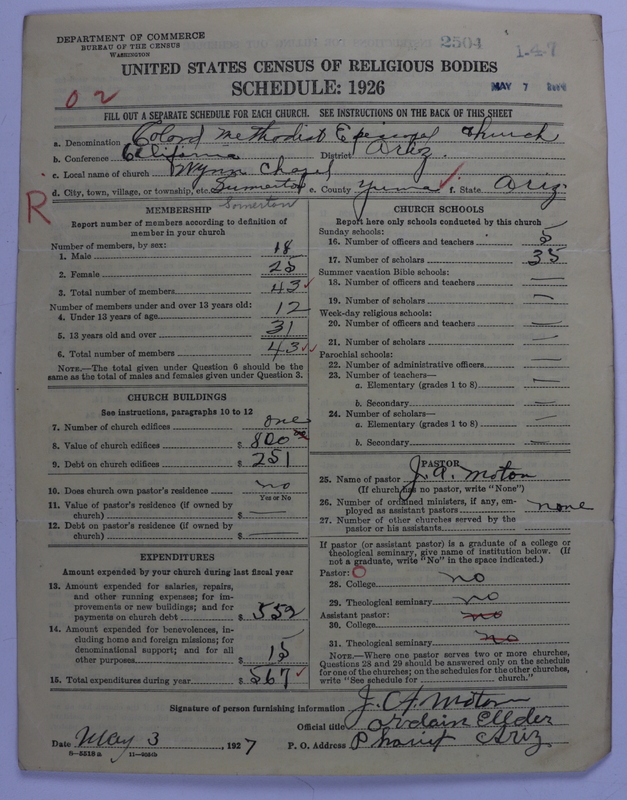 DEPARTMENT OF COMMERCE
BUREAU OF THE CENSUS
WASHINGTON
2504
1-4-7
UNITED STATES CENSUS OF RELIGIOUS BODIES
SCHEDULE: 1926
MAY 7
02
FILL OUT A SEPARATE SCHEDULE FOR EACH CHURCH. SEE INSTRUCTIONS ON THE BACK OF THIS SHEET
a. Denomination Colord Methodist Episcopal Church
b. Conference California District Ariz.
c. Local name of church Wynn Chapel
d. City, town, village, or township, etc. Sumerton e. County Yuma f. State Ariz.
Somerton
R
MEMBERSHIP
Report number of members according to definition of
member in your church
Number of members, by sex:
1. Male 18
2. Female 25
3. Total number of members 43
Number of members under and over 13 years old:
4. Under 13 years of age 12
5. 13 years old and over 31
6. Total number of members 43
NOTE.—The total given under Question 6 should be
same as the total of males and females given under Question 3.
CHURCH BUILDINGS
See instructions, paragraphs 10 to 12
7. Number of church edifices one
8. Value of church edifices $ 800 00
9. Debt on church edifices $ 251
10. Does church own pastor's residence no
Yes or No
11. Value of pastor's residence (if owned by
church) $ —
12. Debt on pastor's residence (if owned by
church) $ —
EXPENDITURES
Amount expended by your church during last fiscal year
13. Amount expended for salaries, repairs,
and other running expenses; for im-
provements or new buildings; and for
payments on church debt $ 552
14. Amount expended for benevolences, in-
cluding home and foreign missions; for
denominational support; and for all
other purposes $ 15
15. Total expenditures during year $ 567
CHURCH SCHOOLS
Report here only schools conducted by this church
Sunday schools:
16. Number of officers and teachers 5
17. Number of scholars 35
Summer vacation Bible schools:
18. Number of officers and teachers —
19. Number of scholars —
Week-day religious schools:
20. Number of officers and teachers —
21. Number of scholars —
Parochial schools:
22. Number of administrative officers —
23. Number of teachers—
a. Elementary (grades 1 to 8) —
b. Secondary —
24. Number of scholars—
a. Elementary (grades 1 to 8) —
b. Secondary —
PASTOR
25. Name of pastor J. A. Moton
(If church has no pastor, write "None")
26. Number of ordained ministers, if any, em-
ployed as assistant pastors none
27. Number of other churches served by the
pastor or his assistants
If pastor (or assistant pastor) is a graduate of a college or
theological seminary, give name of institution below. (If
not a graduate, write "No" in the space indicated.)
Pastor: O
28. College no
29. Theological seminary no
Assistant pastor: no
30. College
31. Theological seminary no
NOTE.—Where one pastor serves two or more churches,
Questions 28 and 29 should be answered only on the schedule
for one of the churches; on the schedules for the other churches,
write "See schedule for church."
Signature of person furnishing information J. A. Moton
Official title ordain Ellder
Date May 3, 1927 P. O. Address Phonix Ariz
8—5518a